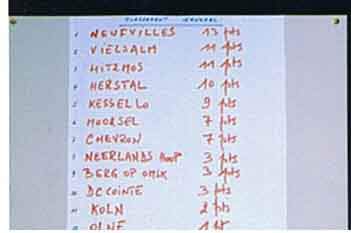 CLASSEMENT GENERAL
1 NEUFVILLES 13 pts
2 VIELSALM 11 pts
3 HITZMOS 11 pts
4 HERSTAL 10 pts
5 KESSELLO 9 pts
6 MOORSEL 7 pts
7 CHEVRON 7 pts
8 NEERLANDS 3 pts
9 BERG OP 3 pts
10 DCCOINTE 3 pts
11 KOLN 2 pts
OLNE 1